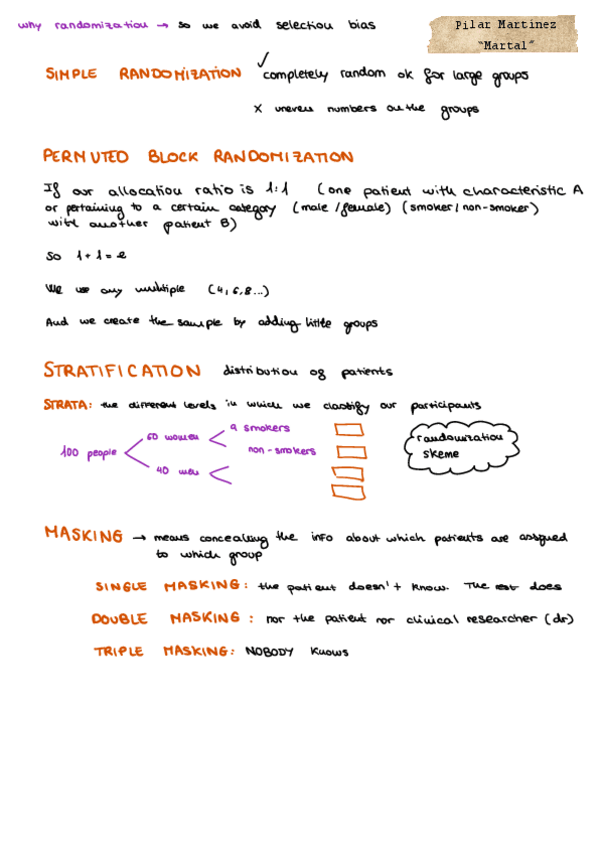 why randomization → so we avoid selection bias
Pilar Martinez
"Martal"
SIMPLE RANDOMIZATION ✓ completely random ok for large groups
x uneven numbers on the groups
PERMUTED BLOCK RANDOMIZATION
If our allocation ratio is 1:1 (one patient with characteristic A
or pertaining to a certain category (male/female) (smoker/non-smoker)
with another patient B)
So 1+1=2
We use any multiple (4,6,8...)
And we create the sample by adding little groups
STRATIFICATION distribution of patients
STRATA: the different levels in which we classify our participants
100 people
60 women
9 smokers
non-smokers
40 men
randomization
skeme
MASKING → means concealing the info about which patients are assigned
to which group
SINGLE MASKING: the patient doesn't know. The rest does
DOUBLE MASKING: nor the patient nor clinical researcher (dr)
TRIPLE MASKING: NOBODY knows